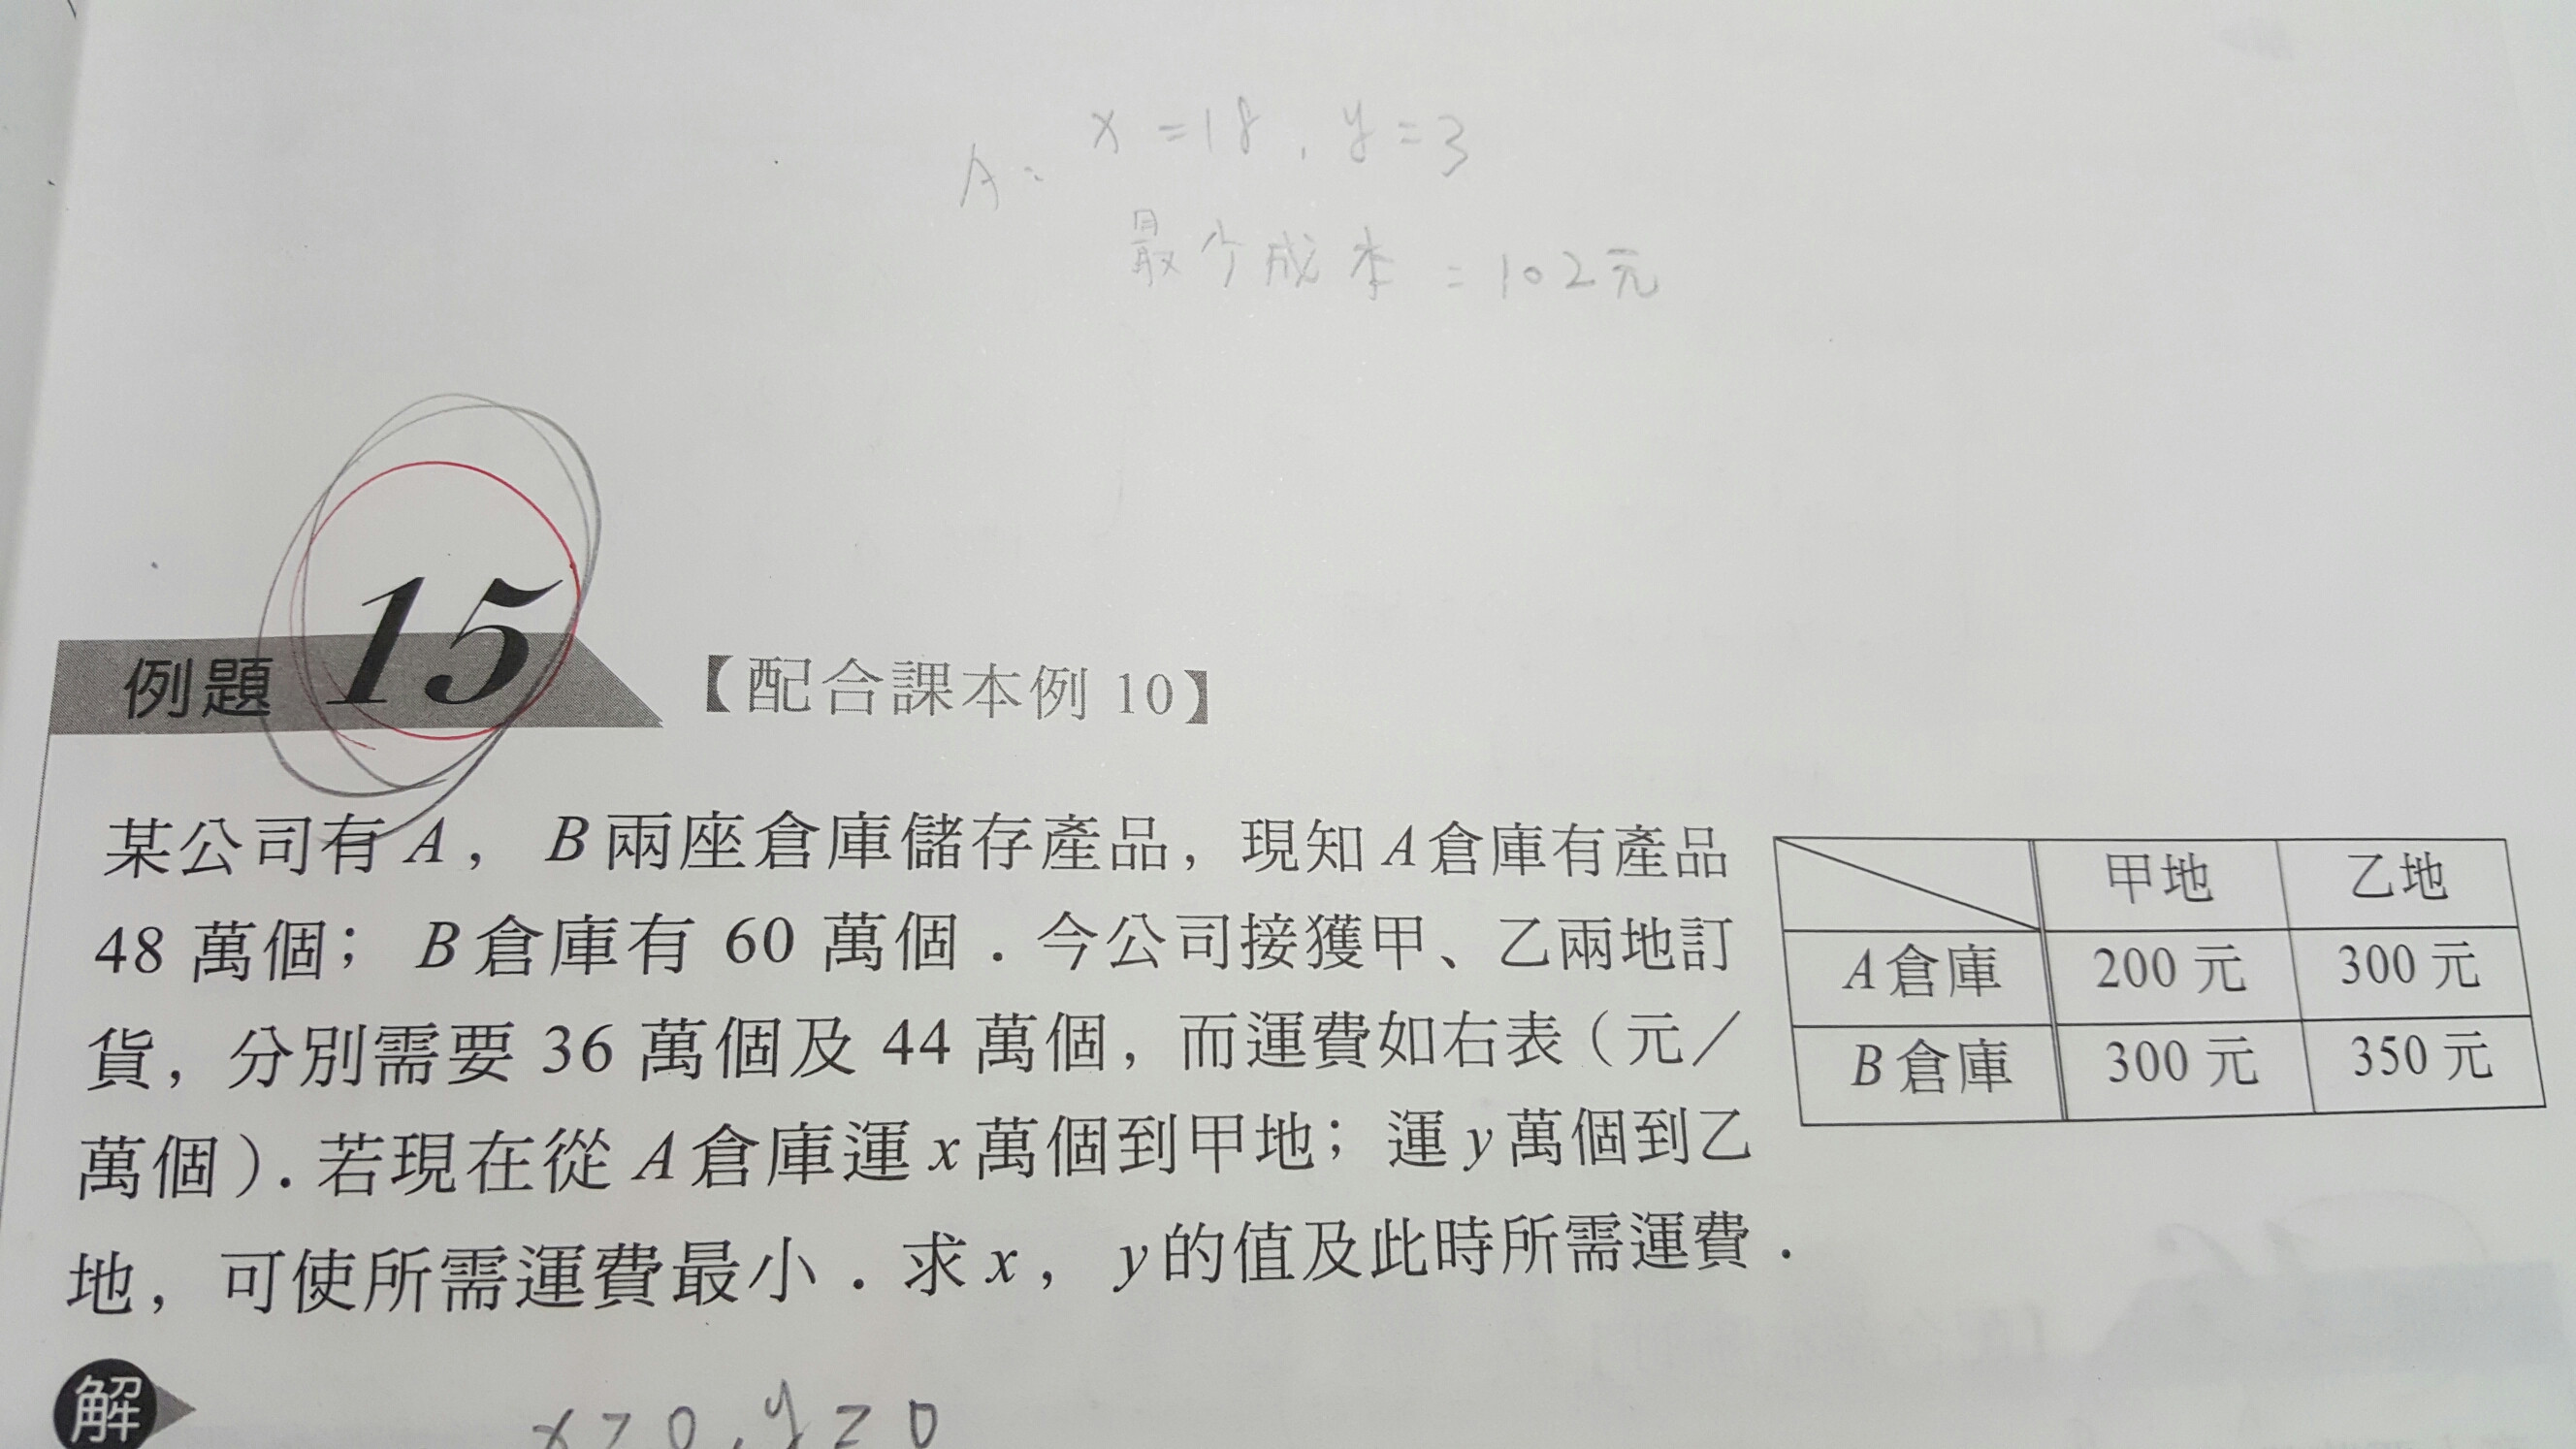 A: x=18, y=3
最少成本=102元
例題 15 【配合課本例 10】
某公司有 A，B 兩座倉庫儲存產品，現知 A 倉庫有產品
48 萬個；B 倉庫有 60 萬個．今公司接獲甲、乙兩地訂
貨，分別需要 36 萬個及 44 萬個，而運費如右表（元／
萬個）．若現在從 A 倉庫運 x 萬個到甲地；運 y 萬個到乙
地，可使所需運費最小．求 x，y 的值及此時所需運費．
甲地 乙地
A 倉庫 200 元 300 元
B 倉庫 300 元 350 元
解
x≥0, y≥0